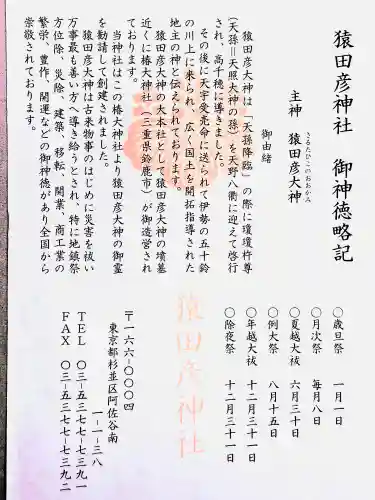 猿田彦神社 御神徳略記
主神 猿田彦大神
さるたひこのおおかみ
御由緒
猿田彦大神は「天孫降臨」の際に瓊瓊杵尊
(天孫=天照大神の孫)を天野八衢に迎えて啓行
され、高千穂に導きました。
その後に天宇受売命に送られて伊勢の五十鈴
の川上に来られ、広く国土を開拓指導された
地主の神と伝えられております。
猿田彦大神の大本社として猿田彦大神の墳墓
近くに椿大神社(三重県鈴鹿市)が御造営され
ております。
当神社はこの椿大神社より猿田彦大神の御霊
を勧請して創建されました。
猿田彦大神は古来物事のはじめに災害を祓い
万事最も善い方へと導き給うとされ、特に地鎮祭
方位除、災除、建築、移転、開業、商工業の
繁栄、豊作、開運などの御神徳があり全国から
崇敬されております。
○歳旦祭 一月一日
○月次祭 毎月八日
○夏越大祓 六月三十日
○例大祭 八月十五日
○年越大祓 十二月三十一日
○除夜祭 十二月三十一日
猿田彦神社
〒一六六-〇〇〇四
東京都杉並区阿佐谷南
一-一-三八
TEL 〇三-五三七七-七三九一
FAX 〇三-五三七七-七三九二